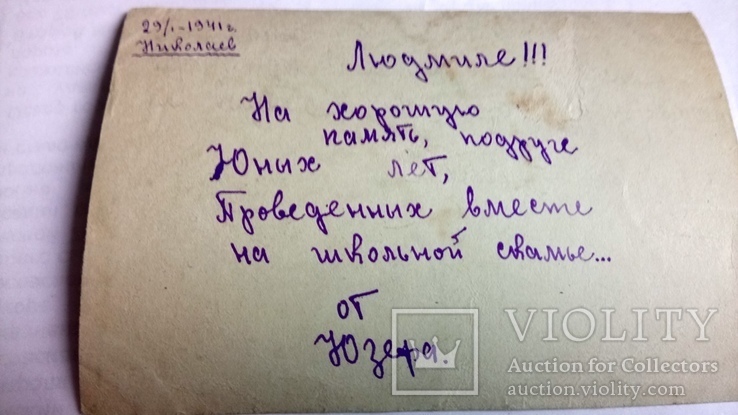 29/I-1941 г.
Николаев
Людмиле!!!
На хорошую
память, подруге
Юных лет,
Проведенных вместе
на школьной скамье...
от
Юзефа.
VIOLITY
Auction for Collectors
auction.violity.com